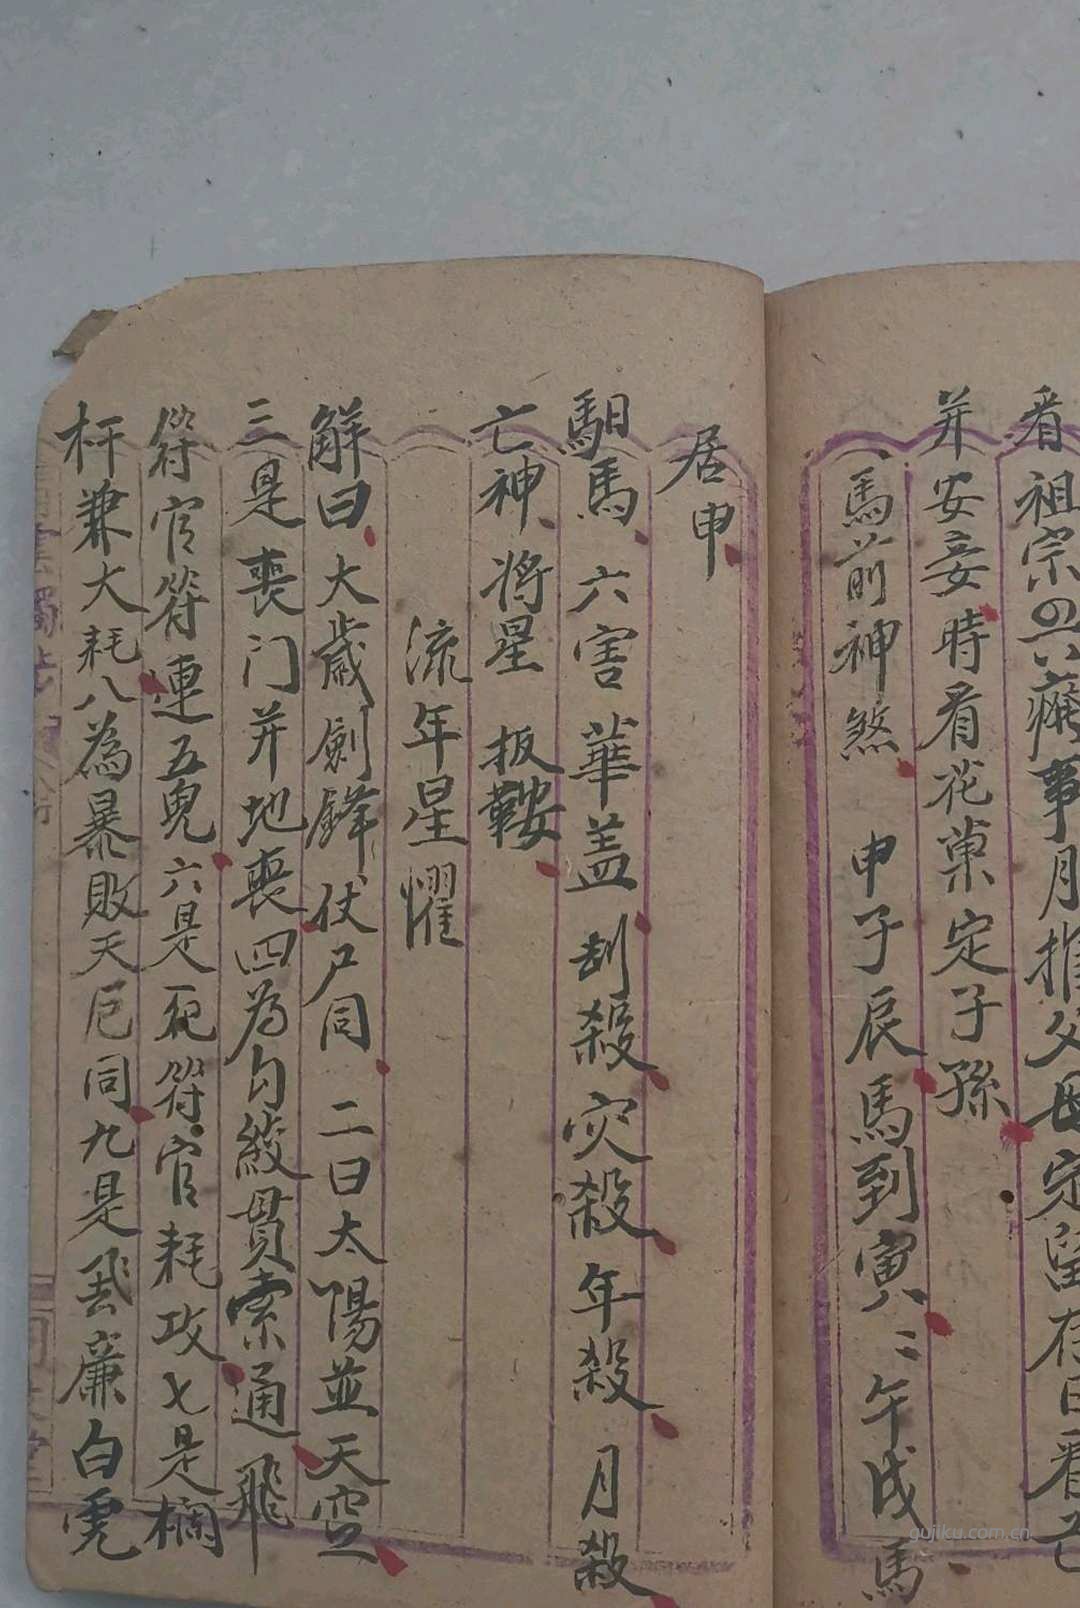 看祖宗四六癀事月推父母宗留存日看亡
并安妾時看花菓定子孫
馬前神煞 申子辰馬到寅 寅午戌馬
居申
馹馬 六害 華盖 刮殺 灾殺 年殺 月殺
亡神 将星 扳鞍
流年星懼
解曰大歲劍鋒伏尸同 二曰太陽並天空
三是喪门并地喪四为勾絞貫索通 飛
符官符連五鬼六是死符官耗攻七是欄
杆兼大耗八為暴敗天厄同九是飛廉白虎
gujiku.com.cn